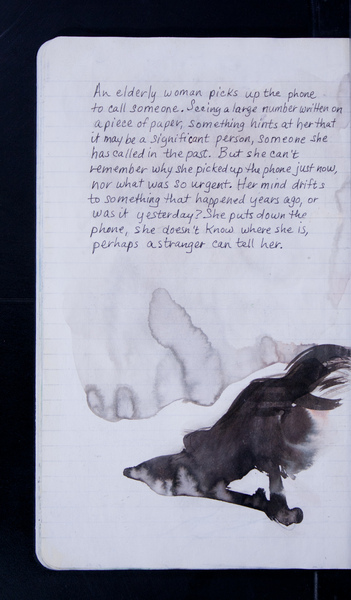 An elderly woman picks up the phone
to call someone. Seeing a large number written on
a piece of paper, something hints at her that
it may be a significant person, someone she
has called in the past. But she can't
remember why she picked up the phone just now,
nor what was so urgent. Her mind drifts
to something that happened years ago, or
was it yesterday? She puts down the
phone, she doesn't know where she is,
perhaps a stranger can tell her.